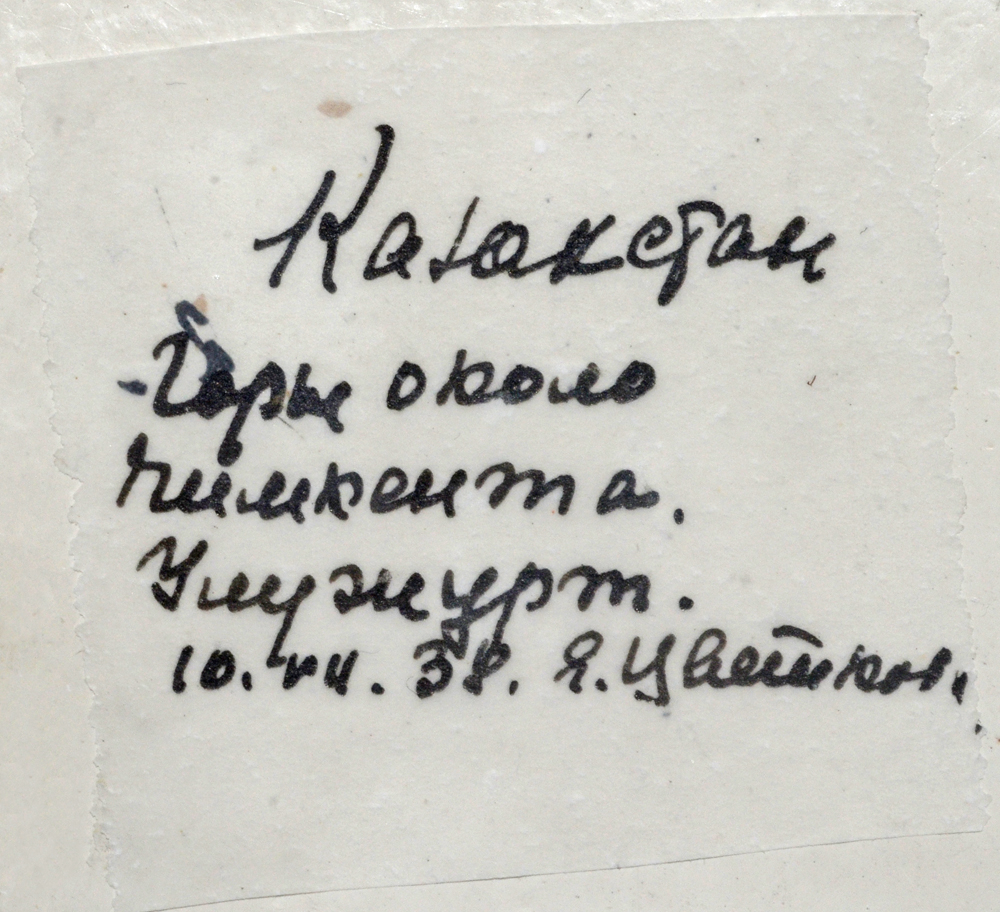 Казахстан
Горы около
Чимкента.
10. VII. 38. Я. Цветков.